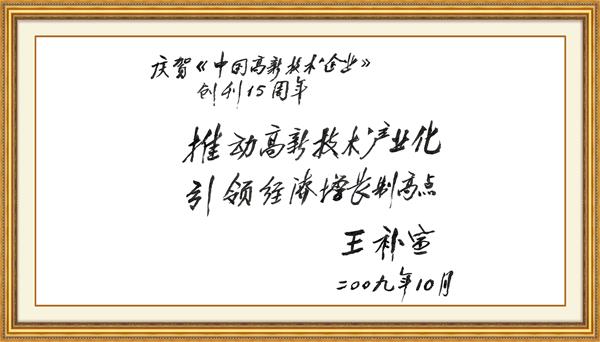 庆贺《中国高新技术企业》
创刊15周年
推动高新技术产业化
引领经济增长制高点
王补宣
二〇〇九年10月